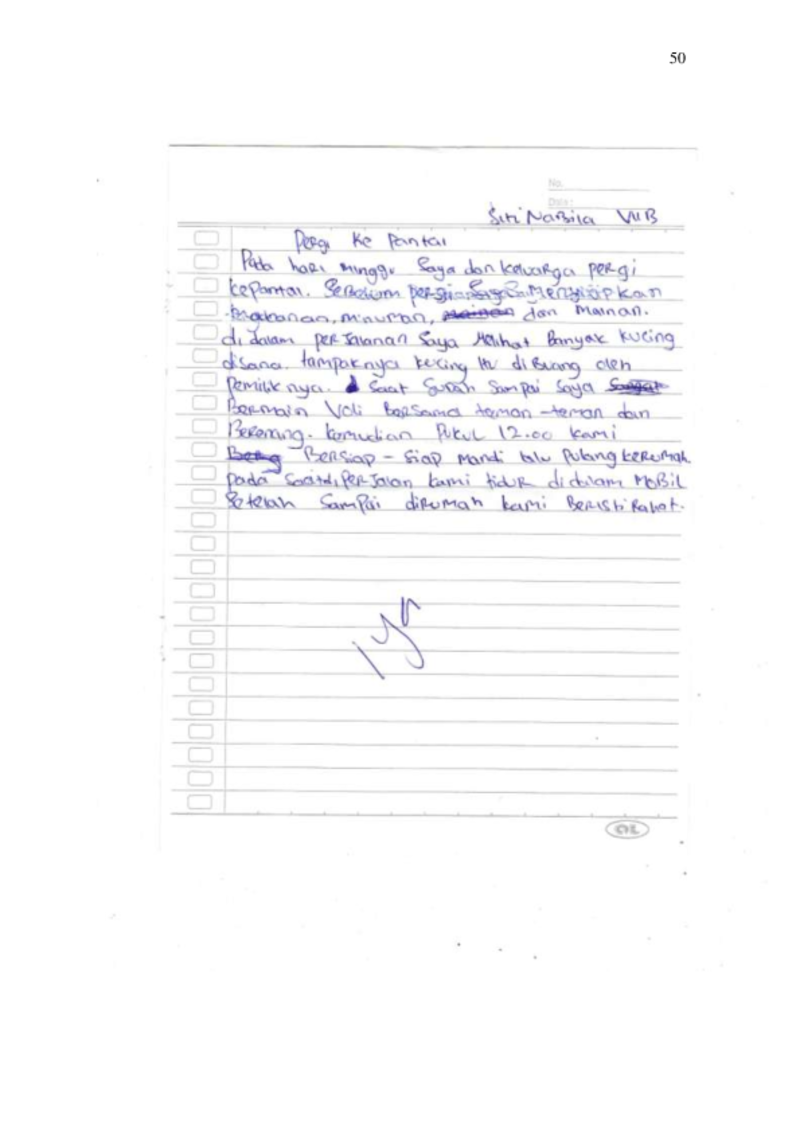 50
No.
Date:
Siti Nabila VIIB
Pergi ke Pantai
Pada hari minggu saya dan keluarga pergi
kepantai. Sebelum pergi saya menyiapkan
makanan, minuman, mainan dan mainan.
di dalam perjalanan saya melihat Banyak kucing
disana. tampaknya kucing itu diBuang oleh
pemiliknya. saat sudah sampai saya sangat
Bermain Voli Bersama teman-teman dan
Berenang. kemudian Pukul 12.00 kami
Beng Bersiap-siap mandi lalu Pulang kerumah.
pada saat diperjalan kami tidur didalam MoBil
setelah sampai dirumah kami Beristirahat.
OL